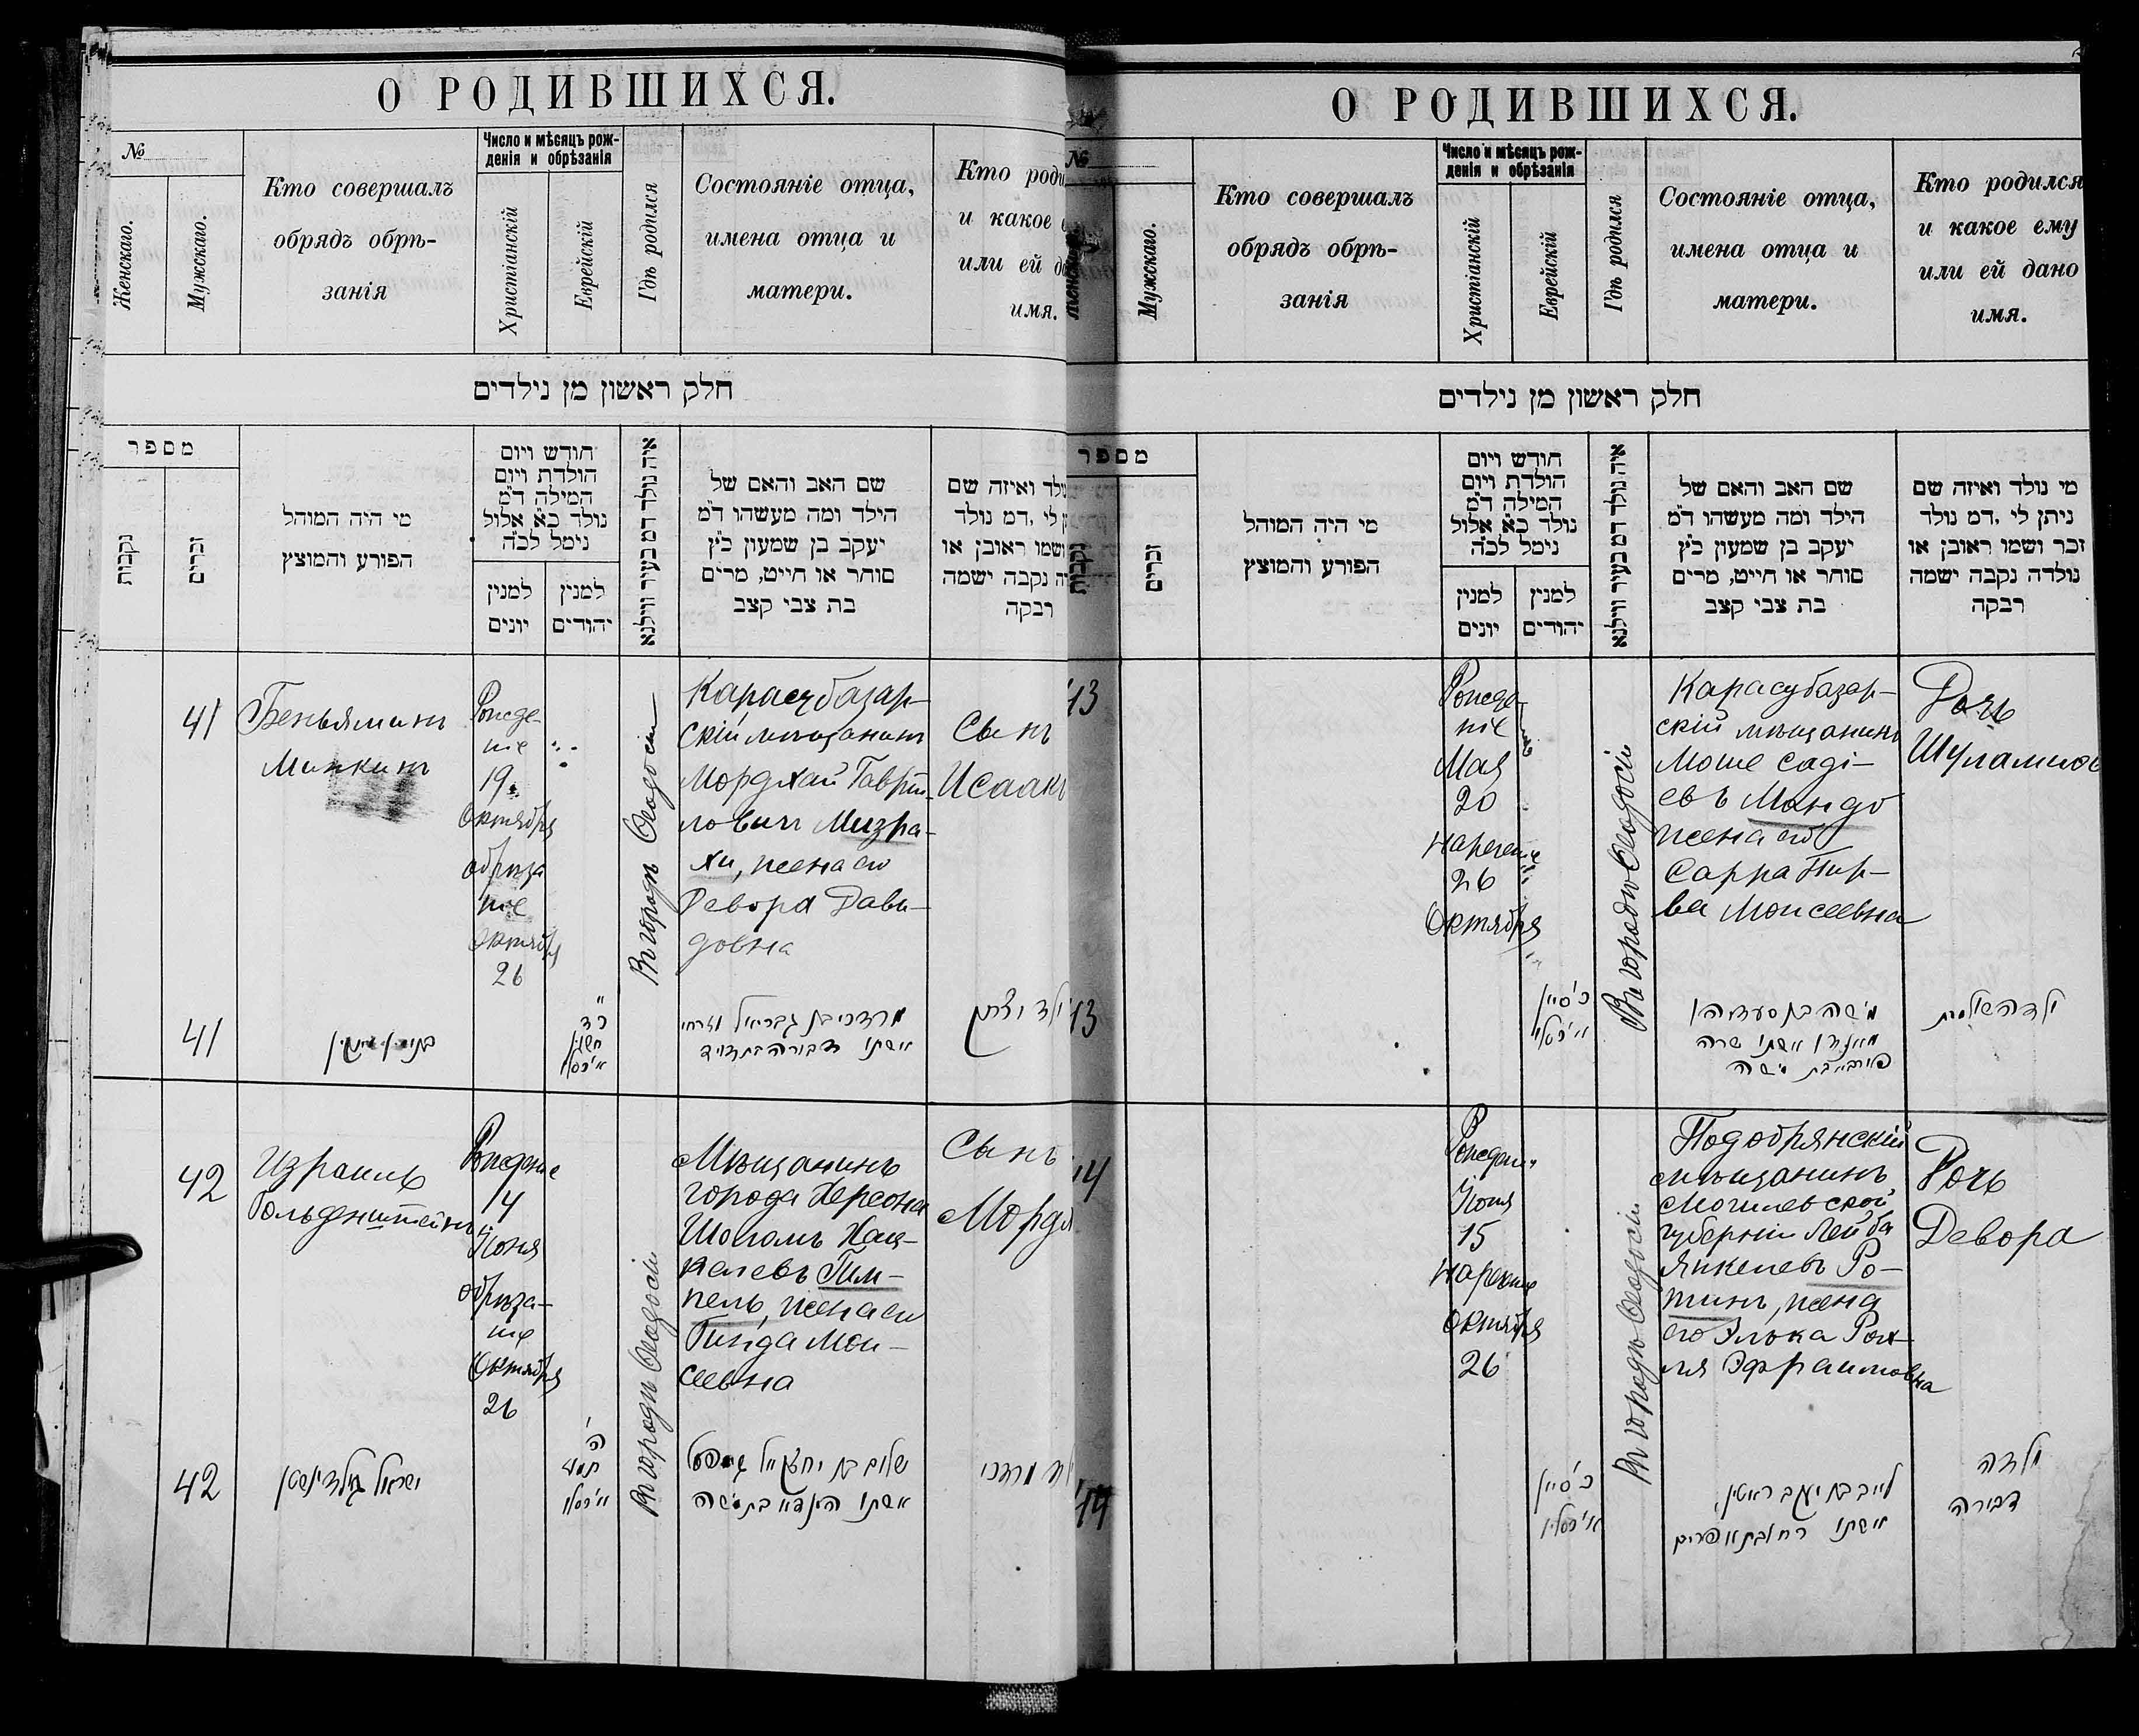 О РОДИВШИХСЯ.
№
Женскаго.
Мужскаго.
Кто совершалъ
обрядъ обрѣ-
занія
Число и мѣсяцъ рож-
денія и обрѣзанія
Христіанскій
Еврейскій
Гдѣ родился
Состояніе отца,
имена отца и
матери.
Кто роди
и какое
или ей
имя.
חלק ראשון מן נילדים
מספר
נקבות
זכרים
מי היה המוהל
הפורע והמוצץ
חודש ויום
הולדת ויום
המילה ד״מ
נולד כ״א אלול
נימל לכ״ה
למנין
יונים
למנין
יהודים
איה נולד דמ בעיר ווילנא
שם האב והאם של
הילד ומה מעשהו ד״מ
יעקב בן שמעון כ״ץ
סוחר או חייט, מרים
בת צבי קצב
נולד ואיזה שם
לי, דמ נולד
ושמו ראובן או
נקבה ישמה
רבקה
41
Беньяминъ
Минкинъ
Рожде-
ніе
19
Октября
обрѣза
ніе
Октября
26
Въ городѣ Ѳеодосіи
Карасубазар-
скій мѣщанинъ
Мордхай Гаврі-
ловичъ Мизра-
хи, жена его
Девора Дави-
довна
Сынъ
Исаакъ
41
כד
חשון
מרדכי בן גבריאל מזרחי
אשתו דבורה בת דויד
ילד יצחק
42
Израиль
Гольденштейнъ
Рожденіе
14
Іюня
обрѣза-
ніе
Октября
26
Въ городѣ Ѳеодосіи
Мѣщанинъ
города Херсона
Шоломъ Хац-
келевъ Гим-
пель, жена его
Гинда Мои-
сеевна
Сынъ
Мордх
42
ישראל גולדינשטן
ה׳
תמוז
שלום בן יחזקאל גימפעל
אשתו הינדא בת משה
ילד מרדכי
О РОДИВШИХСЯ.
№
Мужскаго.
Кто совершалъ
обрядъ обрѣ-
занія
Число и мѣсяцъ рож-
денія и обрѣзанія
Христіанскій
Еврейскій
Гдѣ родился
Состояніе отца,
имена отца и
матери.
Кто родился
и какое ему
или ей дано
имя.
חלק ראשון מן נילדים
מספר
נקבות
זכרים
מי היה המוהל
הפורע והמוצץ
חודש ויום
הולדת ויום
המילה ד״מ
נולד כ״א אלול
נימל לכ״ה
למנין
יונים
למנין
יהודים
איה נולד דמ בעיר ווילנא
שם האב והאם של
הילד ומה מעשהו ד״מ
יעקב בן שמעון כ״ץ
סוחר או חייט, מרים
בת צבי קצב
מי נולד ואיזה שם
ניתן לי, דמ נולד
זכר ושמו ראובן או
נולדה נקבה ישמה
רבקה
13
Рожде
ніе
Мая
20
нареченіе
26
Октября
Въ городѣ Ѳеодосіи
Карасубазар-
скій мѣщанинъ
Моше Саді-
евъ Мандо
жена его
Сарра Пир-
ва Моисеевна
Дочь
Шуламис
13
כ׳ סיון
משה בן סעדיה
אשתו שרה
בת משה
ילדה שולמית
14
Рожден
Іюня
15
нареченіе
Октября
26
Въ городѣ Ѳеодосіи
Подобрянскій
мѣщанинъ
Могилевской
губерніи Лейба
Янкелевъ Ро-
тинъ, жена
его Элька Рох-
ля Эфраимовна
Дочь
Девора
14
כ׳ סיון
לייב בן יעקב ראטין,
אשתו רחל בת אפרים
ילדה
דבורה